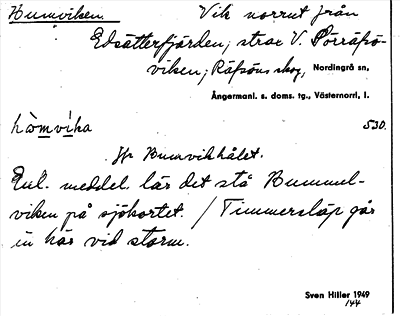 Bumviken. Vik norrut från
Edsätterfjärden, strax V. Sörråfsö-
viken; Råfsöns skog, Nordingrå sn,
Ångermanl. s. doms. tg., Västernorrl. l.
530.
Jfr Bumvikhålet.
Enl. meddel. lär det stå Bummel-
viken på sjökortet. / Timmersläp går
in här vid storm.
Sven Hiller 1949
/44